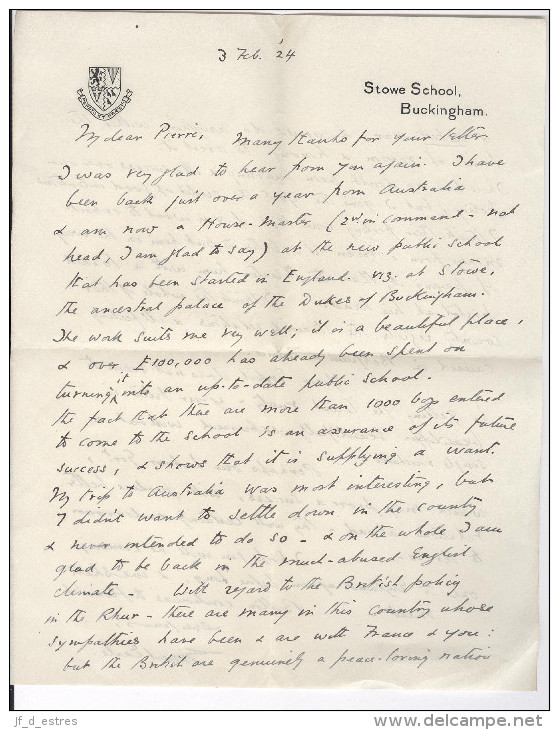 3 Feb. '24
Stowe School,
Buckingham.
My dear Pierre, Many thanks for your letter
I was very glad to hear from you again. I have
been back just over a year from Australia
& am now a House-Master (2nd in command - not
head, I am glad to say) at the new public school
that has been started in England. viz. at Stowe,
the ancestral palace of the Dukes of Buckingham.
The work suits me very well; it is a beautiful place,
& over £100,000 has already been spent on
turning it into an up-to-date public school.
The fact that there are more than 1000 boys entered
to come to the school is an assurance of its future
success, & shows that it is supplying a want.
My trip to Australia was most interesting, but
I didn't want to settle down in the country
& never intended to do so - & on the whole I am
glad to be back in the much-abused English
climate - With regard to the British policy
in the Rhur - there are many in this country whose
sympathies have been & are with France & you:
but the British are genuinely a peace-loving nation
jf_d_estres
www.delcampe.net